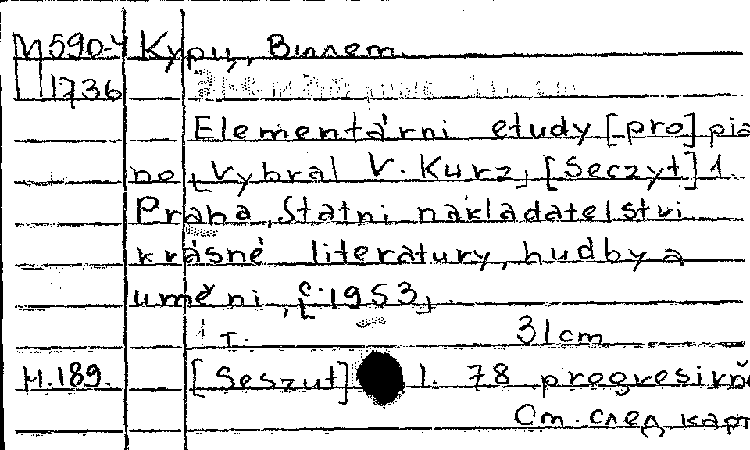 М590-4 Курц, Вилем.
1736
Elementárni etudy [pro] pia
no, [Vybral V. Kurz], [Seczyt] 1.
Praha, Statni nakladatelstvi
krásné literatury, hudby a
uměni, [c.1953].
1 т. 31 cm
Н.189. [Seszut] 1. 78 progresivně
См. след карт